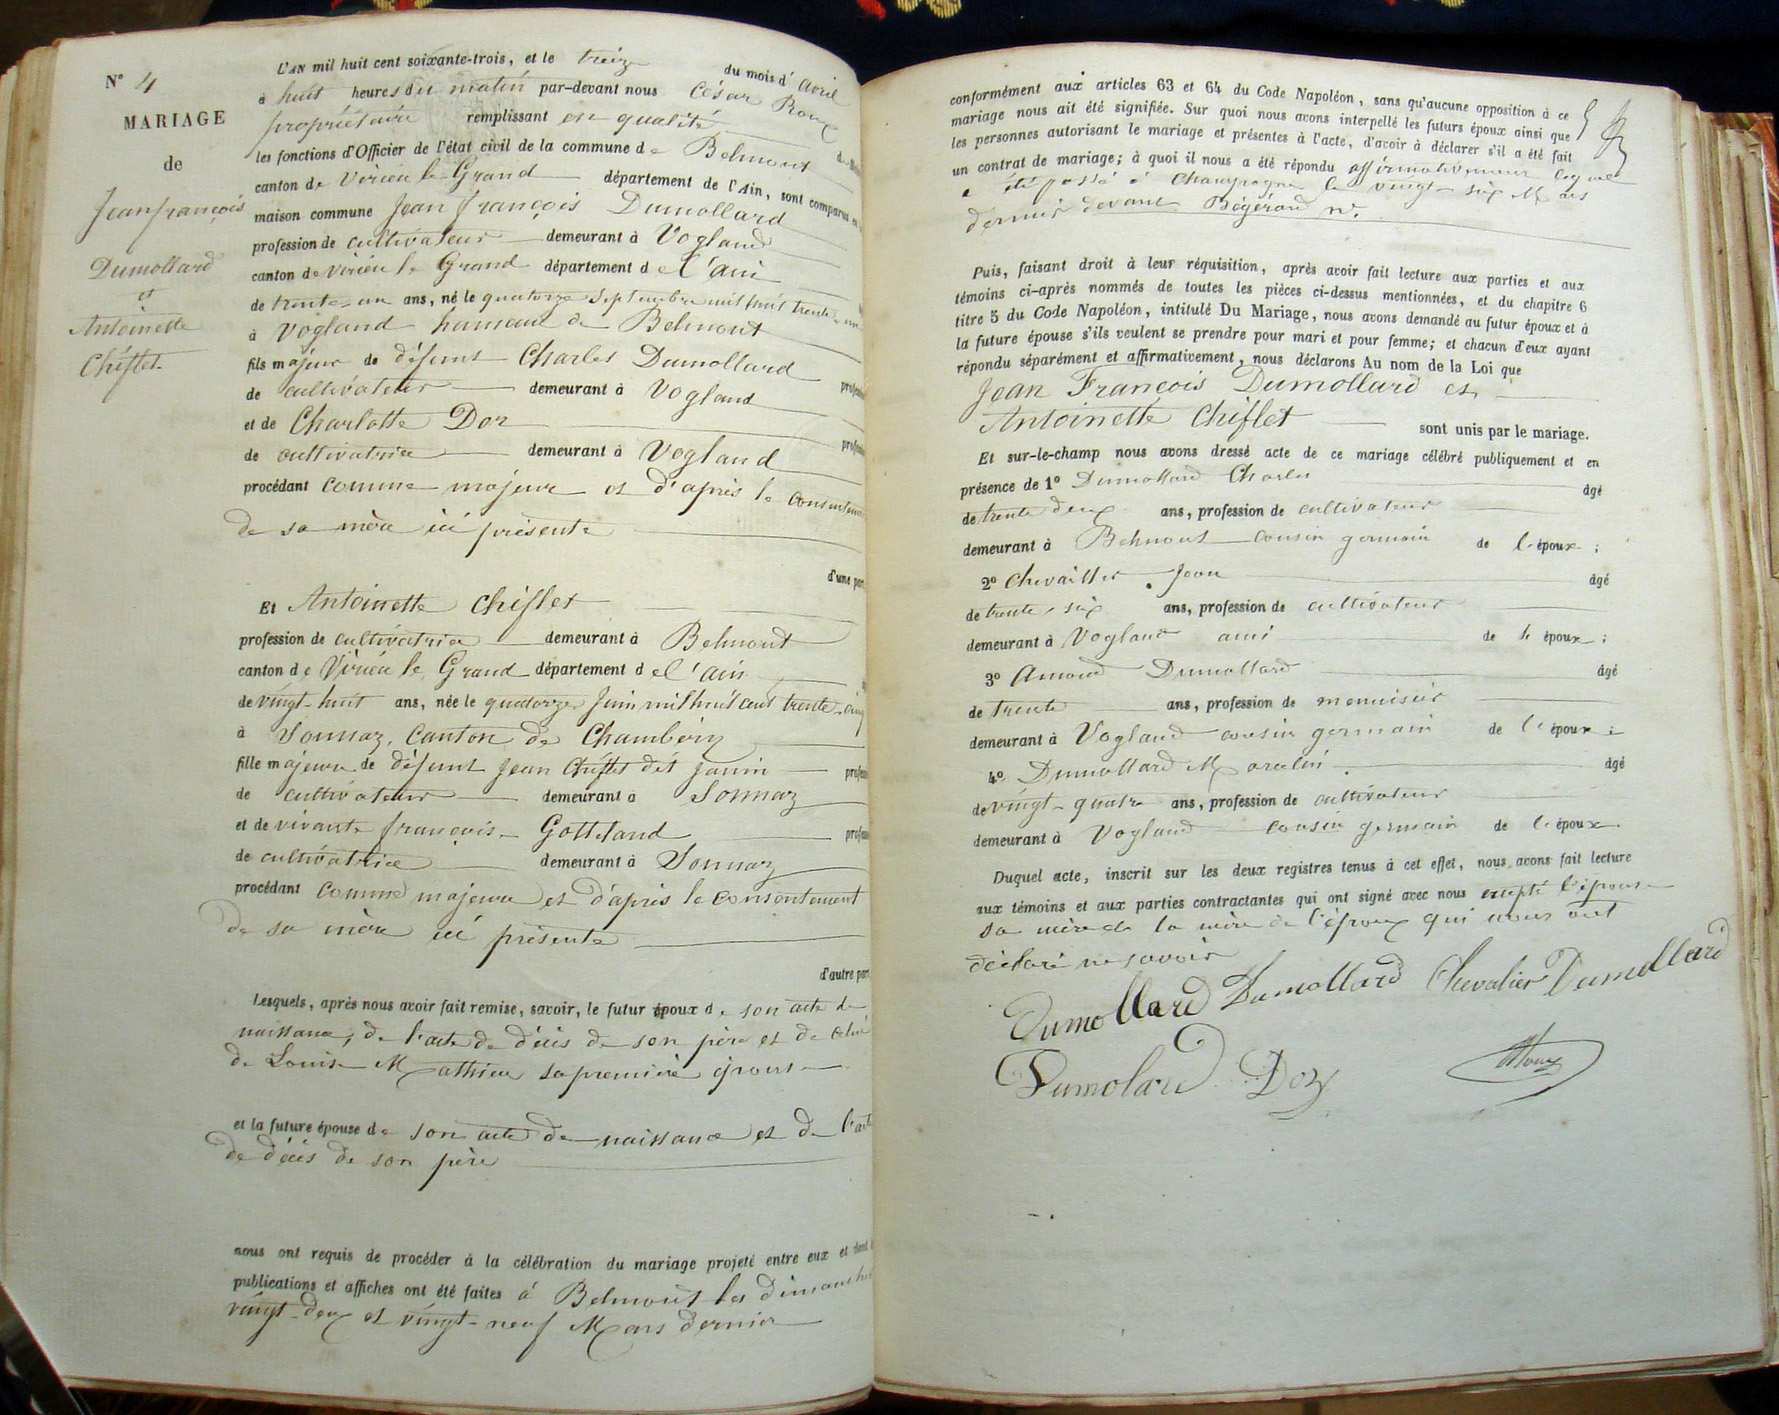 N° 4
MARIAGE
de
Jean françois
Dumollard
et
Antoinette
Chiflet
L'AN mil huit cent soixante-trois, et le treize du mois d'avril
à huit heures du matin par-devant nous César Roux
propriétaire remplissant en qualité
les fonctions d'Officier de l'état civil de la commune de Belmont
canton de Virieu le Grand département de l'Ain, sont comparus en
maison commune Jean françois Dumollard
profession de cultivateur demeurant à Vogland
canton de Virieu le Grand département de l'ain
de trente-un ans, né le quatorze Septembre mil huit trente-un
à Vogland hameau de Belmont
fils majeur de défunt Charles Dumollard
de cultivateur demeurant à Vogland
et de Charlotte Doz
de cultivatrice demeurant à Vogland
procédant comme majeur et d'après le consentement
de sa mère ici présente
d'une part
Et Antoinette Chiflet
profession de cultivatrice demeurant à Belmont
canton de Virieu le Grand département de l'ain
de vingt-huit ans, née le quatorze Juin mil huit cent trente-cinq
à Sonnaz, Canton de Chambéry
fille majeure de défunt Jean Chiflet dit Janin
de cultivateur demeurant à Sonnaz
et de vivante françoise Gotteland
de cultivatrice demeurant à Sonnaz
procédant comme majeure et d'après le consentement
de sa mère ici présente
d'autre part
Lesquels, après nous avoir fait remise, savoir, le futur époux de son acte de
naissance, de l'acte de décès de son père et de celui
de Louise Mathieu sa première épouse
et la future épouse de son acte de naissance et de l'acte
de décès de son père
nous ont requis de procéder à la célébration du mariage projeté entre eux et dont
publications et affiches ont été faites à Belmont les dimanches
vingt-deux et vingt-neuf Mars dernier
conformément aux articles 63 et 64 du Code Napoléon, sans qu'aucune opposition à ce
mariage nous ait été signifiée. Sur quoi nous avons interpellé les futurs époux ainsi que
les personnes autorisant le mariage et présentes à l'acte, d'avoir à déclarer s'il a été fait
un contrat de mariage; à quoi il nous a été répondu affirmativement lequel
a été passé à Champagne le vingt-six Mars
dernier devant Bégérard n.
Puis, faisant droit à leur réquisition, après avoir fait lecture aux parties et aux
témoins ci-après nommés de toutes les pièces ci-dessus mentionnées, et du chapitre 6
titre 5 du Code Napoléon, intitulé Du Mariage, nous avons demandé au futur époux et à
la future épouse s'ils veulent se prendre pour mari et pour femme; et chacun d'eux ayant
répondu séparément et affirmativement, nous déclarons Au nom de la Loi que
Jean François Dumollard et
Antoinette Chiflet sont unis par le mariage.
Et sur-le-champ nous avons dressé acte de ce mariage célébré publiquement et en
présence de 1° Dumollard Charles âgé
de trente deux ans, profession de cultivateur
demeurant à Belmont cousin germain de l'époux;
2° Chevallier Jean âgé
de trente-six ans, profession de cultivateur
demeurant à Vogland ami de l'époux;
3° Amand Dumollard âgé
de trente ans, profession de menuisier
demeurant à Vogland cousin germain de l'époux;
4° Dumollard Marcelin âgé
de vingt-quatre ans, profession de cultivateur
demeurant à Vogland cousin germain de l'époux.
Duquel acte, inscrit sur les deux registres tenus à cet effet, nous avons fait lecture
aux témoins et aux parties contractantes qui ont signé avec nous excepté l'épouse
sa mère et la mère de l'époux qui nous ont
déclaré ne savoir
Dumollard Dumollard Chevalier Dumollard
Dumolard Doz Roux